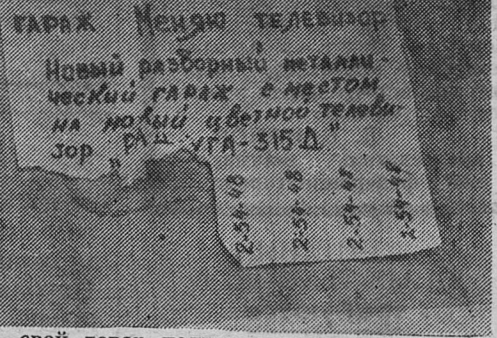 ГАРАЖ Меняю ТЕЛЕВИЗОР
Новый разборный металли-
ческий гараж с местом
на новый цветной телеви-
зор „РАДУГА-315Д"
2-54-48
2-54-48
2-54-48
2-54-48